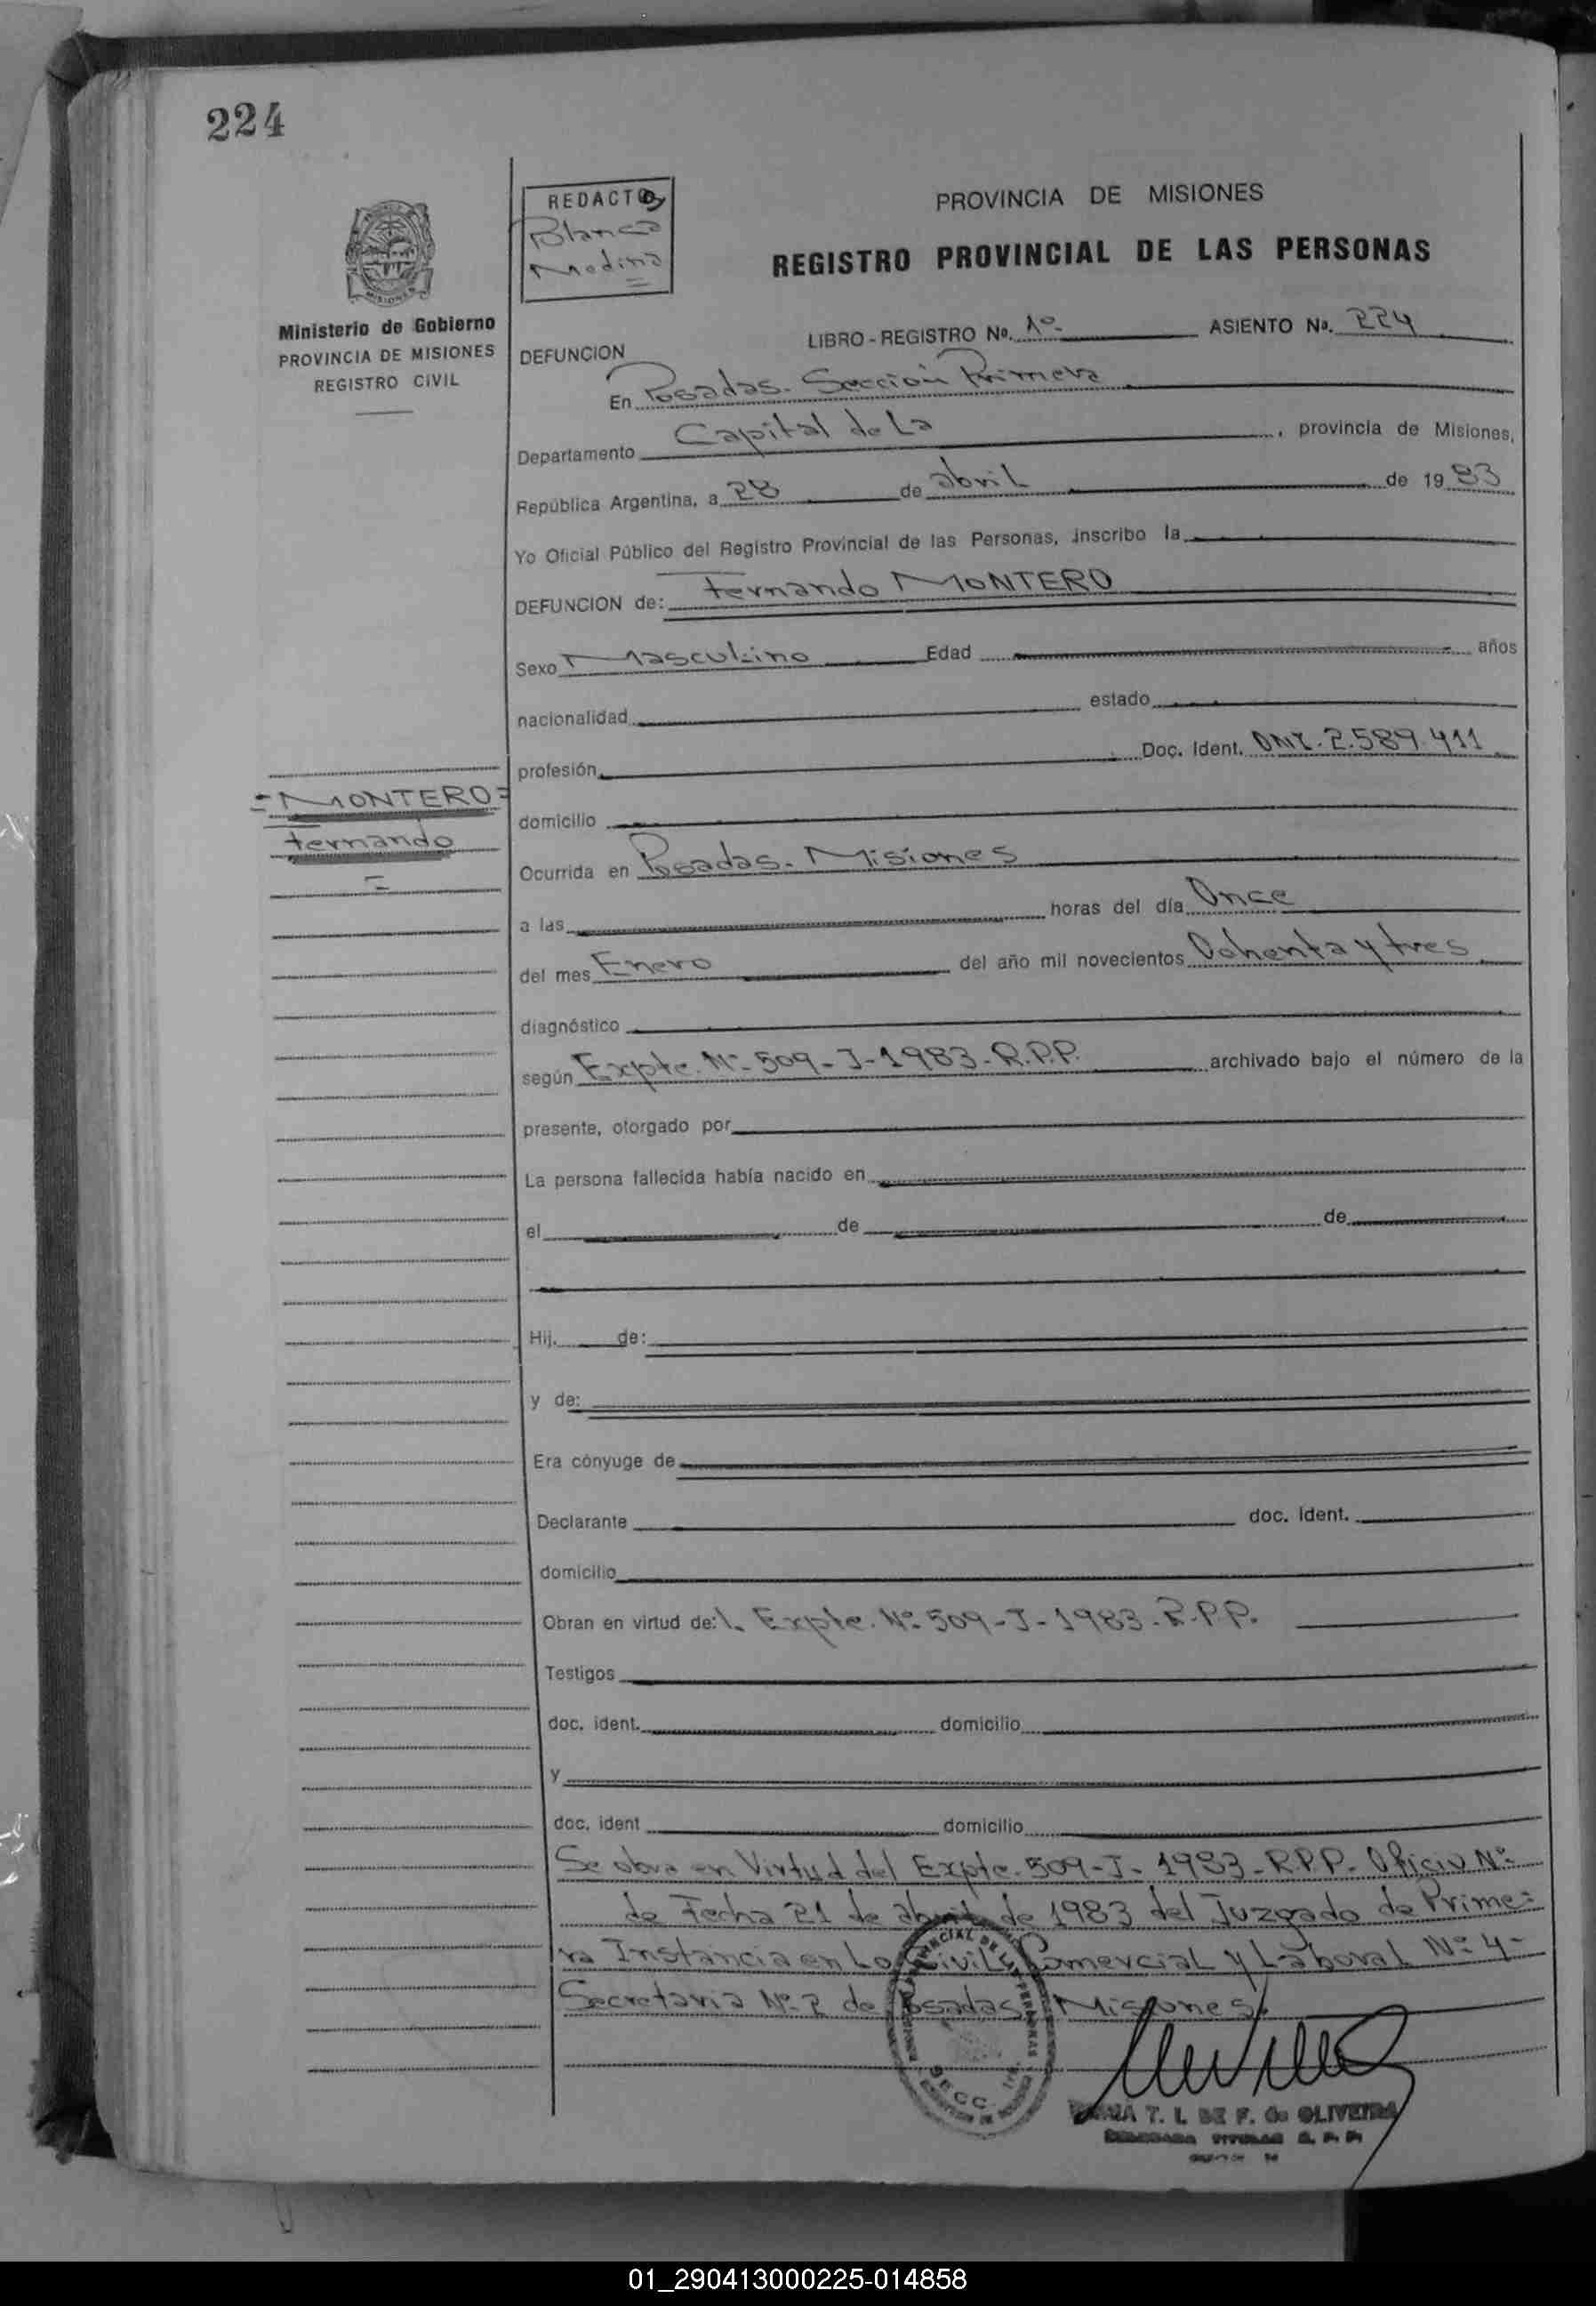 224
REDACTO
Blanca
Medina
PROVINCIA DE MISIONES
REGISTRO PROVINCIAL DE LAS PERSONAS
MISIONES
Ministerio de Gobierno
PROVINCIA DE MISIONES
REGISTRO CIVIL
LIBRO - REGISTRO No. 1º- ASIENTO No. 224
DEFUNCION
En Posadas. Sección Primera
Departamento Capital de La , provincia de Misiones,
República Argentina, a 28 de abril de 19 83
Yo Oficial Público del Registro Provincial de las Personas, inscribo la
DEFUNCION de: Fernando MONTERO
Sexo Masculino Edad años
nacionalidad estado
profesión Doc. Ident. DNI. 2.589.411
= MONTERO =
Fernando
=
domicilio
Ocurrida en Posadas. Misiones
a las horas del día Once
del mes Enero del año mil novecientos Ochenta y tres
diagnóstico
según Expte. Nº- 509-J-1983-R.P.P. archivado bajo el número de la
presente, otorgado por
La persona fallecida había nacido en
el de de
Hij. de:
y de:
Era cónyuge de
Declarante doc. ident.
domicilio
Obran en virtud de: Expte. Nº- 509-J-1983-R.P.P.
Testigos
doc. ident. domicilio
y
doc. ident domicilio
Se obra en Virtud del Expte. 509-J-1983-R.P.P. Oficio Nº-
de Fecha 21 de abril de 1983 del Juzgado de Prime=
ra Instancia en Lo Civil, Comercial y Laboral Nº- 4-
Secretaria Nº- 2 de Posadas, Misiones.
SECC. 1ra.
T. L. DE F. de OLIVEIRA
01_290413000225-014858